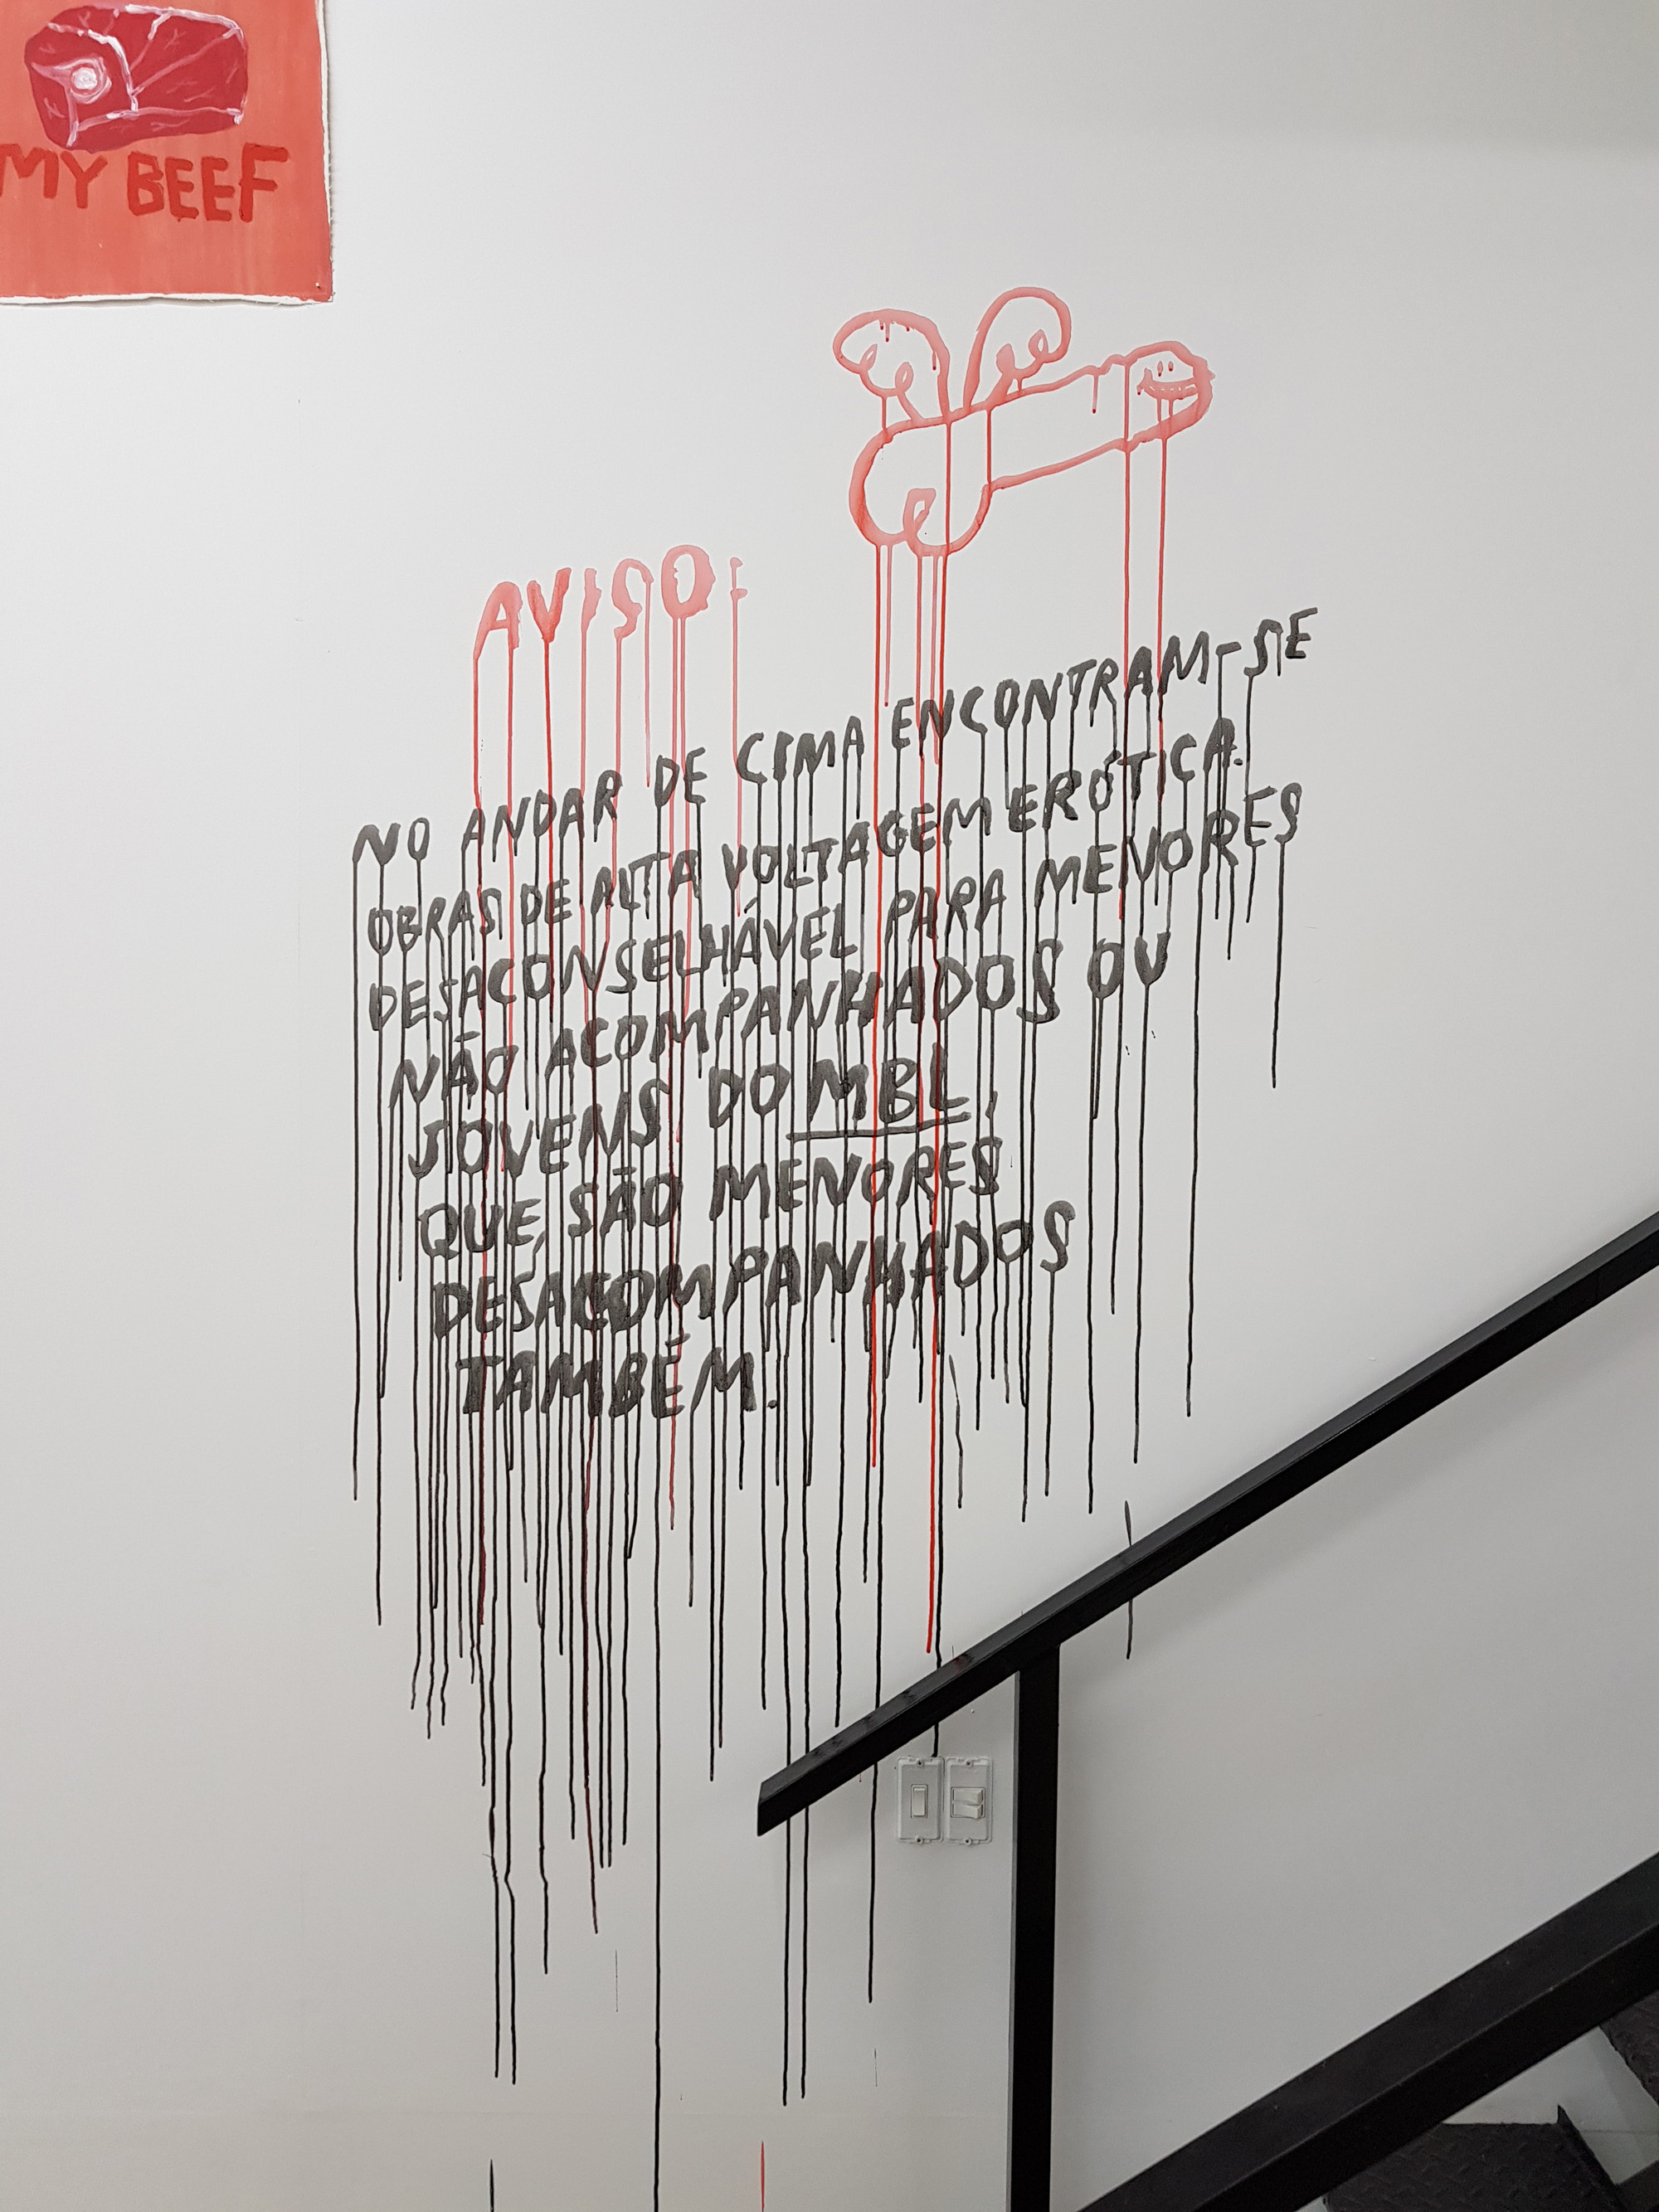 MY BEEF
AVISO:
NO ANDAR DE CIMA ENCONTRAM-SE
OBRAS DE ALTA VOLTAGEM ERÓTICA.
DESACONSELHÁVEL PARA MENORES
NÃO ACOMPANHADOS OU
JOVENS DO MBL,
QUE, SÃO MENORES
DESACOMPANHADOS
TAMBÉM.